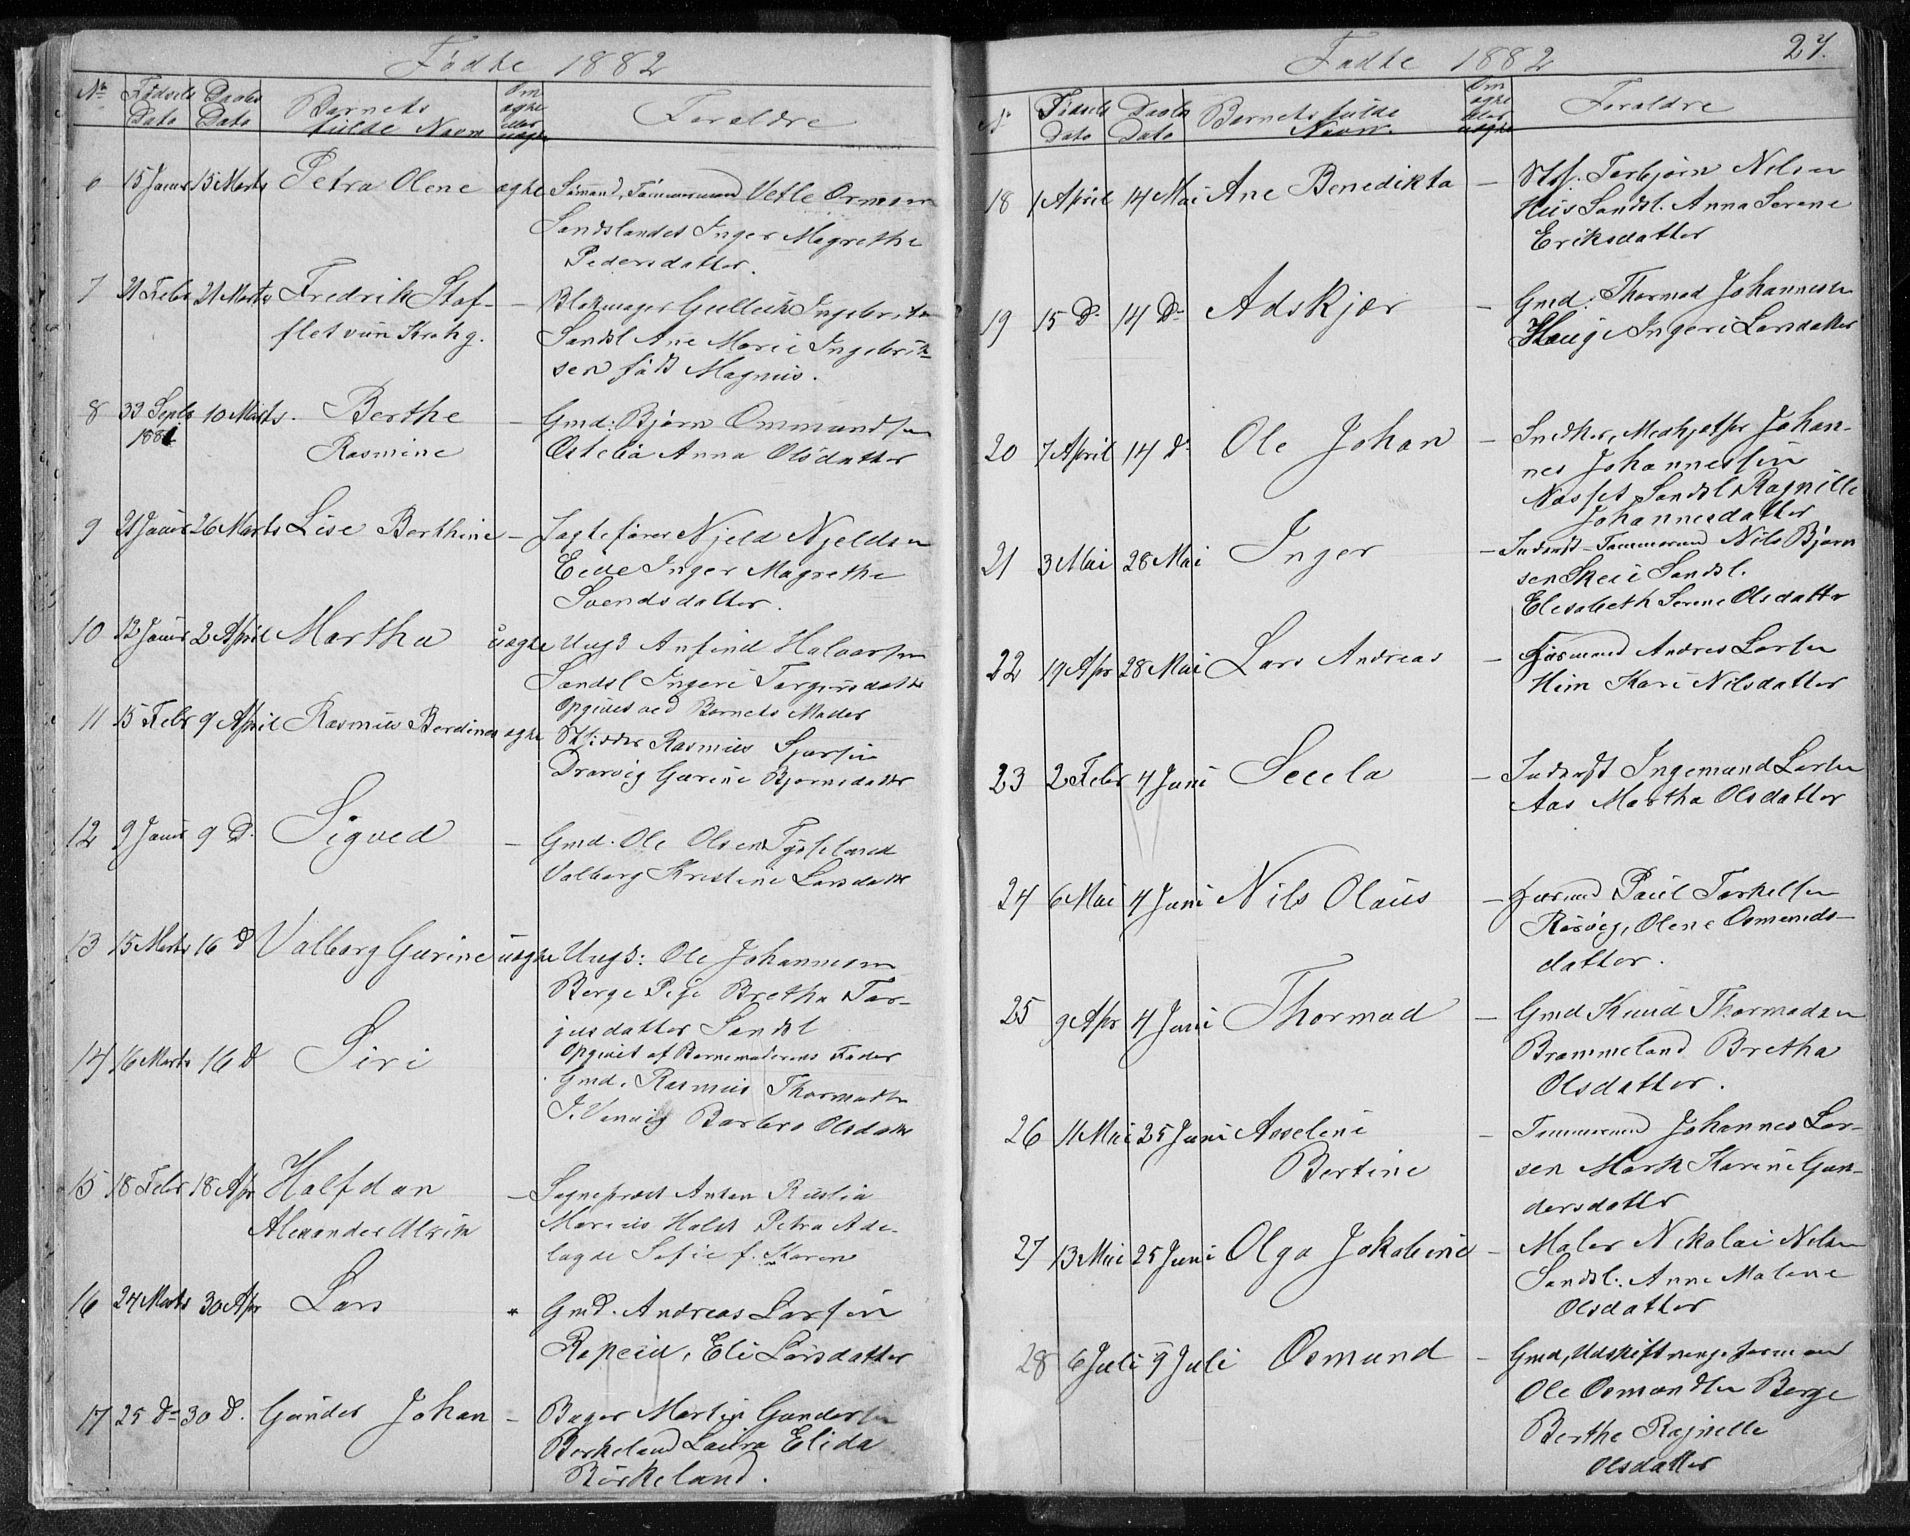 Fødte 1882
No Fødsels Dato Daabs Dato Barnets fulde Navn Om ægte eller uægte Foreldre
6 15 Janr 15 Marts Petra Olene ægte Sømand, Tømmermand Vetle Ormsen
Sandslandet Inger Magrethe
Pedersdatter.
7 21 Febr 21 Marts Fredrik Staf- – Blokmager Gullik
fletvun Sandsl Ane Marie Ingebrik-
sen født Magnus.
8 Septb 10 Marts. Berthe – Gmd: Bjørn Ommundsen
1881 Rasmine Østebø Anna Olsdatter
9 21 Janr 26 Marts Lise Berthine – Jagtefører Njeld Njeldsen
Eide Inger Magrethe
Svendsdatter.
10 12 Janr 2 April Martha uægte Ungk Anfind Halvorsen
Sandsl Ingeri Torgersdatter
Opgives ved Barnets Moder
11 15 Febr 9 April Rasmus Berdines ægte Rasmus Sjursen
Drarvig Gurine Bjørnsdatter
12 9 Janr 9 D. Sigved – Gmd. Ole Olsen Tysseland
Valborg Kristine Larsdatter
13 15 Marts 16 d Valborg Gurine uægte Ungk: Ole Johannesen
Berge Pige Bretha Tor-
jusdatter Sandsl
Opgivet af Barnemoderens Fader
14 16 Marts 16 d Siri Gmd. Rasmus Thormodsen
J. Vanvig Barbro Olsdatter
15 18 Febr 18 Apr Halfdan – Sogneprest Anton
Alexander Ulrik Marius Holst Petra Ade-
lagde Sofie f. Koren
16 24 Marts 30 Apr Lars Gmd. Andreas Larsen
Rapeid, Eli Larsdatter
17 25 d 30 d. Gunder Johan – Bager Martin Gundersen
Berkeland Laura Elida
Birkeland.
Fødte 1882 27.
N Fødsels Dato Daabs Dato Barnets fulde Navn. Om ægte eller uægte Foreldre
18 1 April 14 Mai Ane Benedikta – Torbjørn Nilsen
Hus Sandsl. Anna Serene
Eriksdatter
19 15 D 14 D Adskjer – Gmd: Thormod Johannesen
Haug Ingeri Larsdatter
20 7 April 14 d Ole Johan – Snedker, Johan-
nes Johannessen
Næsset Sandsl Ragnille
Johannesdatter
21 3 Mai 28 Mai Inger – Inderst – Tømmermand Nils Bjørn
sen Skeie Sandsl.
Elisabeth Serene Olsdatter
22 19 Apr 28 Mai Lars Andreas – Husmand Andres Larsen
Hiim Kari Nilsdatter
23 2 Febr 4 Juni Secela – Inderst Ingemund Larsen
Aas Martha Olsdatter
24 6 Mai 4 Juni Nils Olaus – Husmd Paul Torkelsen
Røsvig, Olene Osmunds-
datter.
25 9 Apr 4 Juni Thormod – Gmd Knud Thormodsen
Brommeland Bretha
Olsdatter.
26 11 Mai 25 Juni Asseline – Tømmermd Johannes Lar-
Bertine sen Mork Karine Gun-
dersdatter
27 13 Mai 25 Juni Olga Jakobine – Maler Nikolai Nilsen
Sandsl. Anne Malene
Olsdatter
28 6 Juli 9 Juli Osmund – Gmd, Udskiftningsformand
Ole Osmundsen Berge
Berthe Ragnelle
Olsdatter